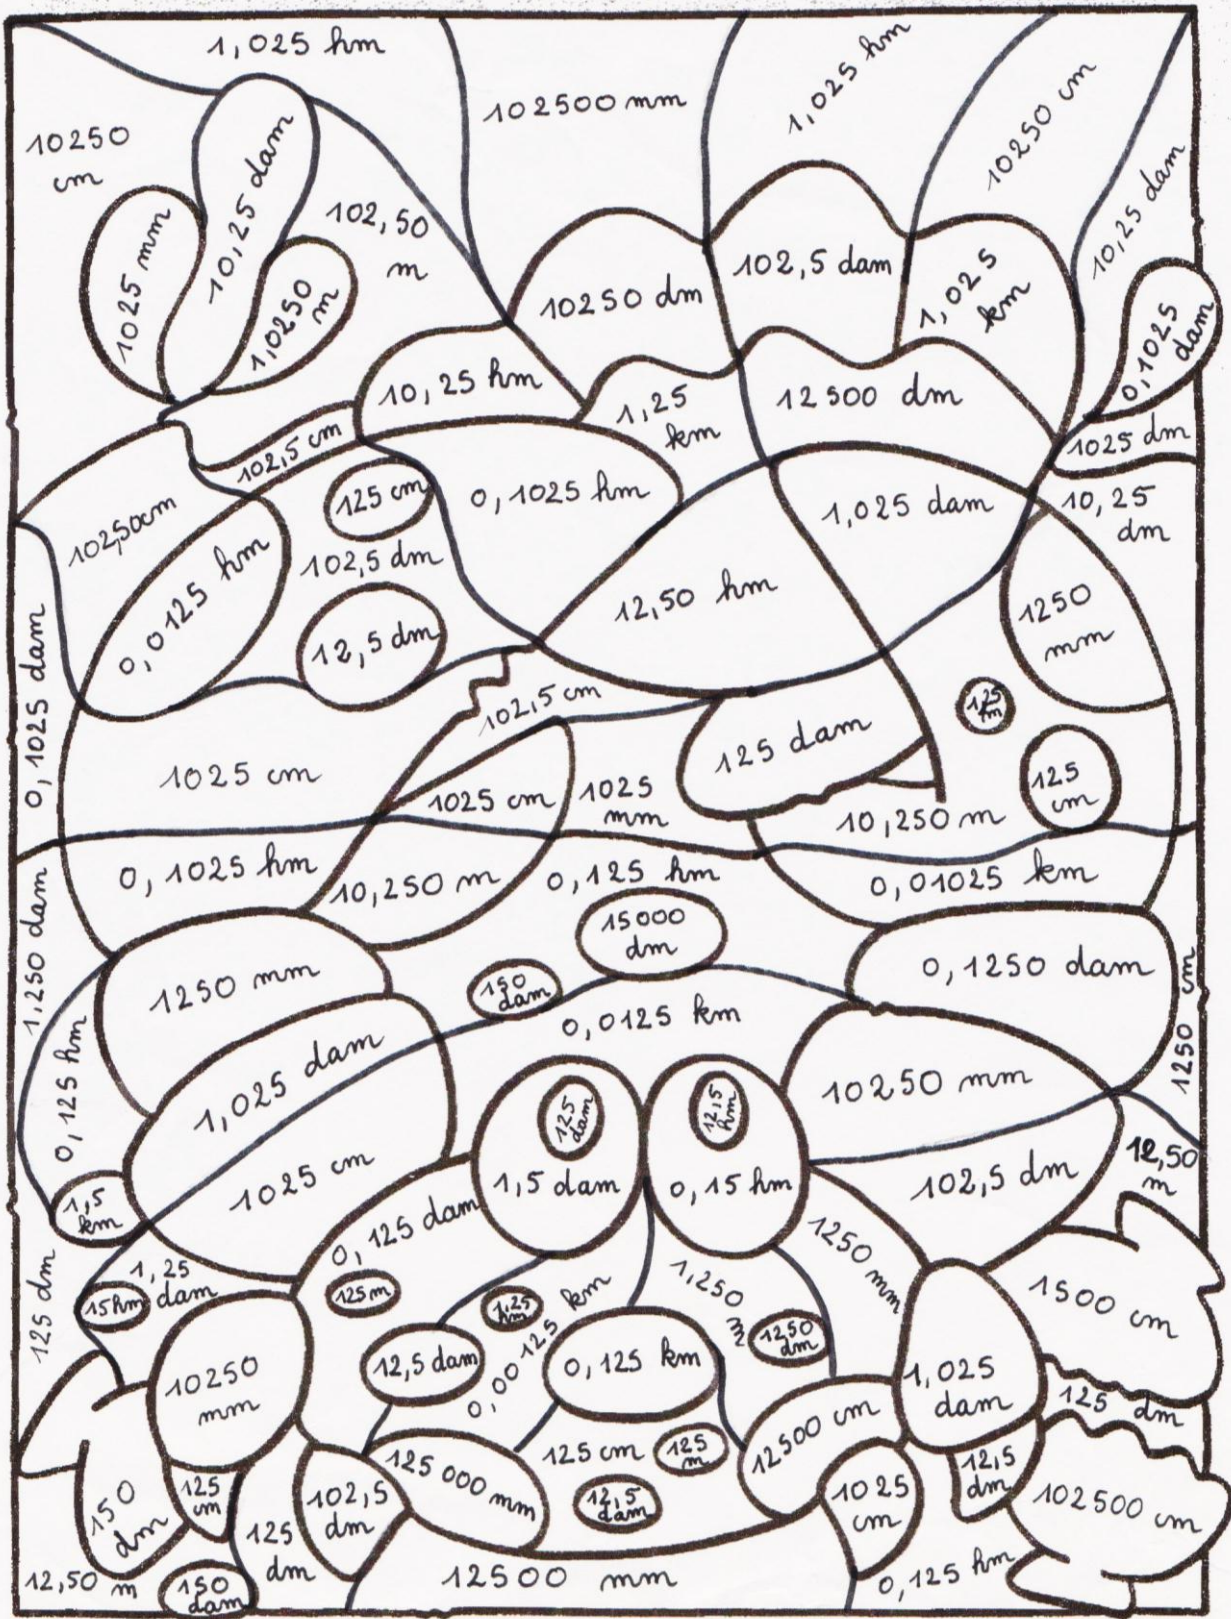 1,025 hm
102500 mm
1,025 hm
10250 cm
10250
cm
10,25 dam
1025 mm
1,0250
m
102,50
m
10,25 dam
0,1025
dam
10250 dm
102,5 dam
1,025
km
10,25 hm
1,25
km
12500 dm
1025 dm
102,5 cm
102,50cm
125 cm
0,1025 hm
1,025 dam
10,25
dm
0,0125 hm
102,5 dm
12,5 dm
12,50 hm
1250
mm
0,1025 dam
102,5 cm
125 dam
125
cm
1025 cm
1025 cm
1025
mm
10,250 m
0,1025 hm
10,250 m
0,125 hm
0,01025 km
15000
dm
1,250 dam
1250 mm
150
dam
0,1250 dam
1250 cm
0,125 hm
1,025 dam
0,0125 km
10250 mm
125
dam
12,5
hm
1025 cm
1,5 dam
0,15 hm
102,5 dm
12,50
m
1,5
km
0,125 dam
1250 mm
125 dm
1,25
dam
15hm
125m
1,25
hm
0,00125 km
1,250
m
1250
dm
1500 cm
10250
mm
12,5 dam
0,125 km
1,025
dam
125 dm
12500 cm
125 cm
125
m
125000 mm
12,5
dam
150
dm
125
cm
125
dm
102,5
dm
1025
cm
12,5
dm
102500 cm
12,50 m
150
dam
12500 mm
0,125 hm